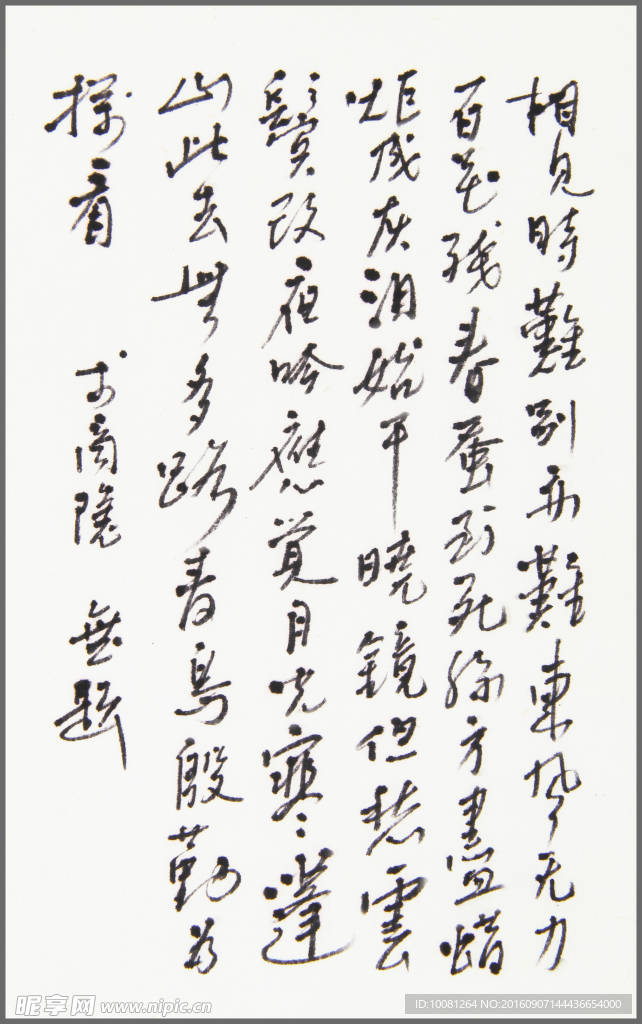 相見時難別亦難東風无力
百花残春蚕到死絲方盡蜡
炬成灰泪始干曉鏡但愁雲
鬢改夜吟應覚月光寒蓬
山此去無多路青鳥殷勤为
探看
李商隱 無題
昵享网 www.nipic.cn
ID:10081264 NO:20160907144436654000